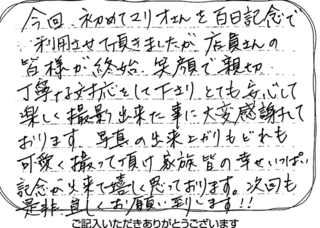 今回、初めてスタリオさんを百日記念で
利用させて頂きましたが店員さんの
皆様が終始、笑顔で親切
丁寧な対応をして下さり、とても安心して
楽しく撮影出来た事に大変感謝して
おります。写真の出来上がりもどれも
可愛く撮って頂け家族皆の幸せいっぱい
記念が出来て嬉しく思っております。次回も
是非宜しくお願い致します!!
ご記入いただきありがとうございます